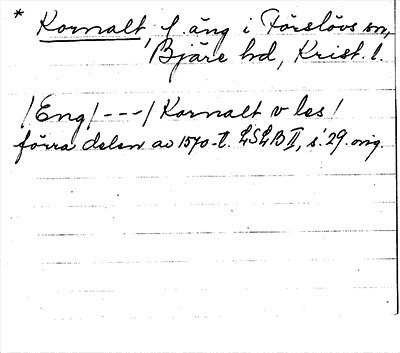 * Kornalt, f. äng i Förslövs sn,
Bjäre hd, Krist. l.
/Eng/---/ Kornalt v les!
förra delen av 1570-t. LSLB II, s. 29. orig.